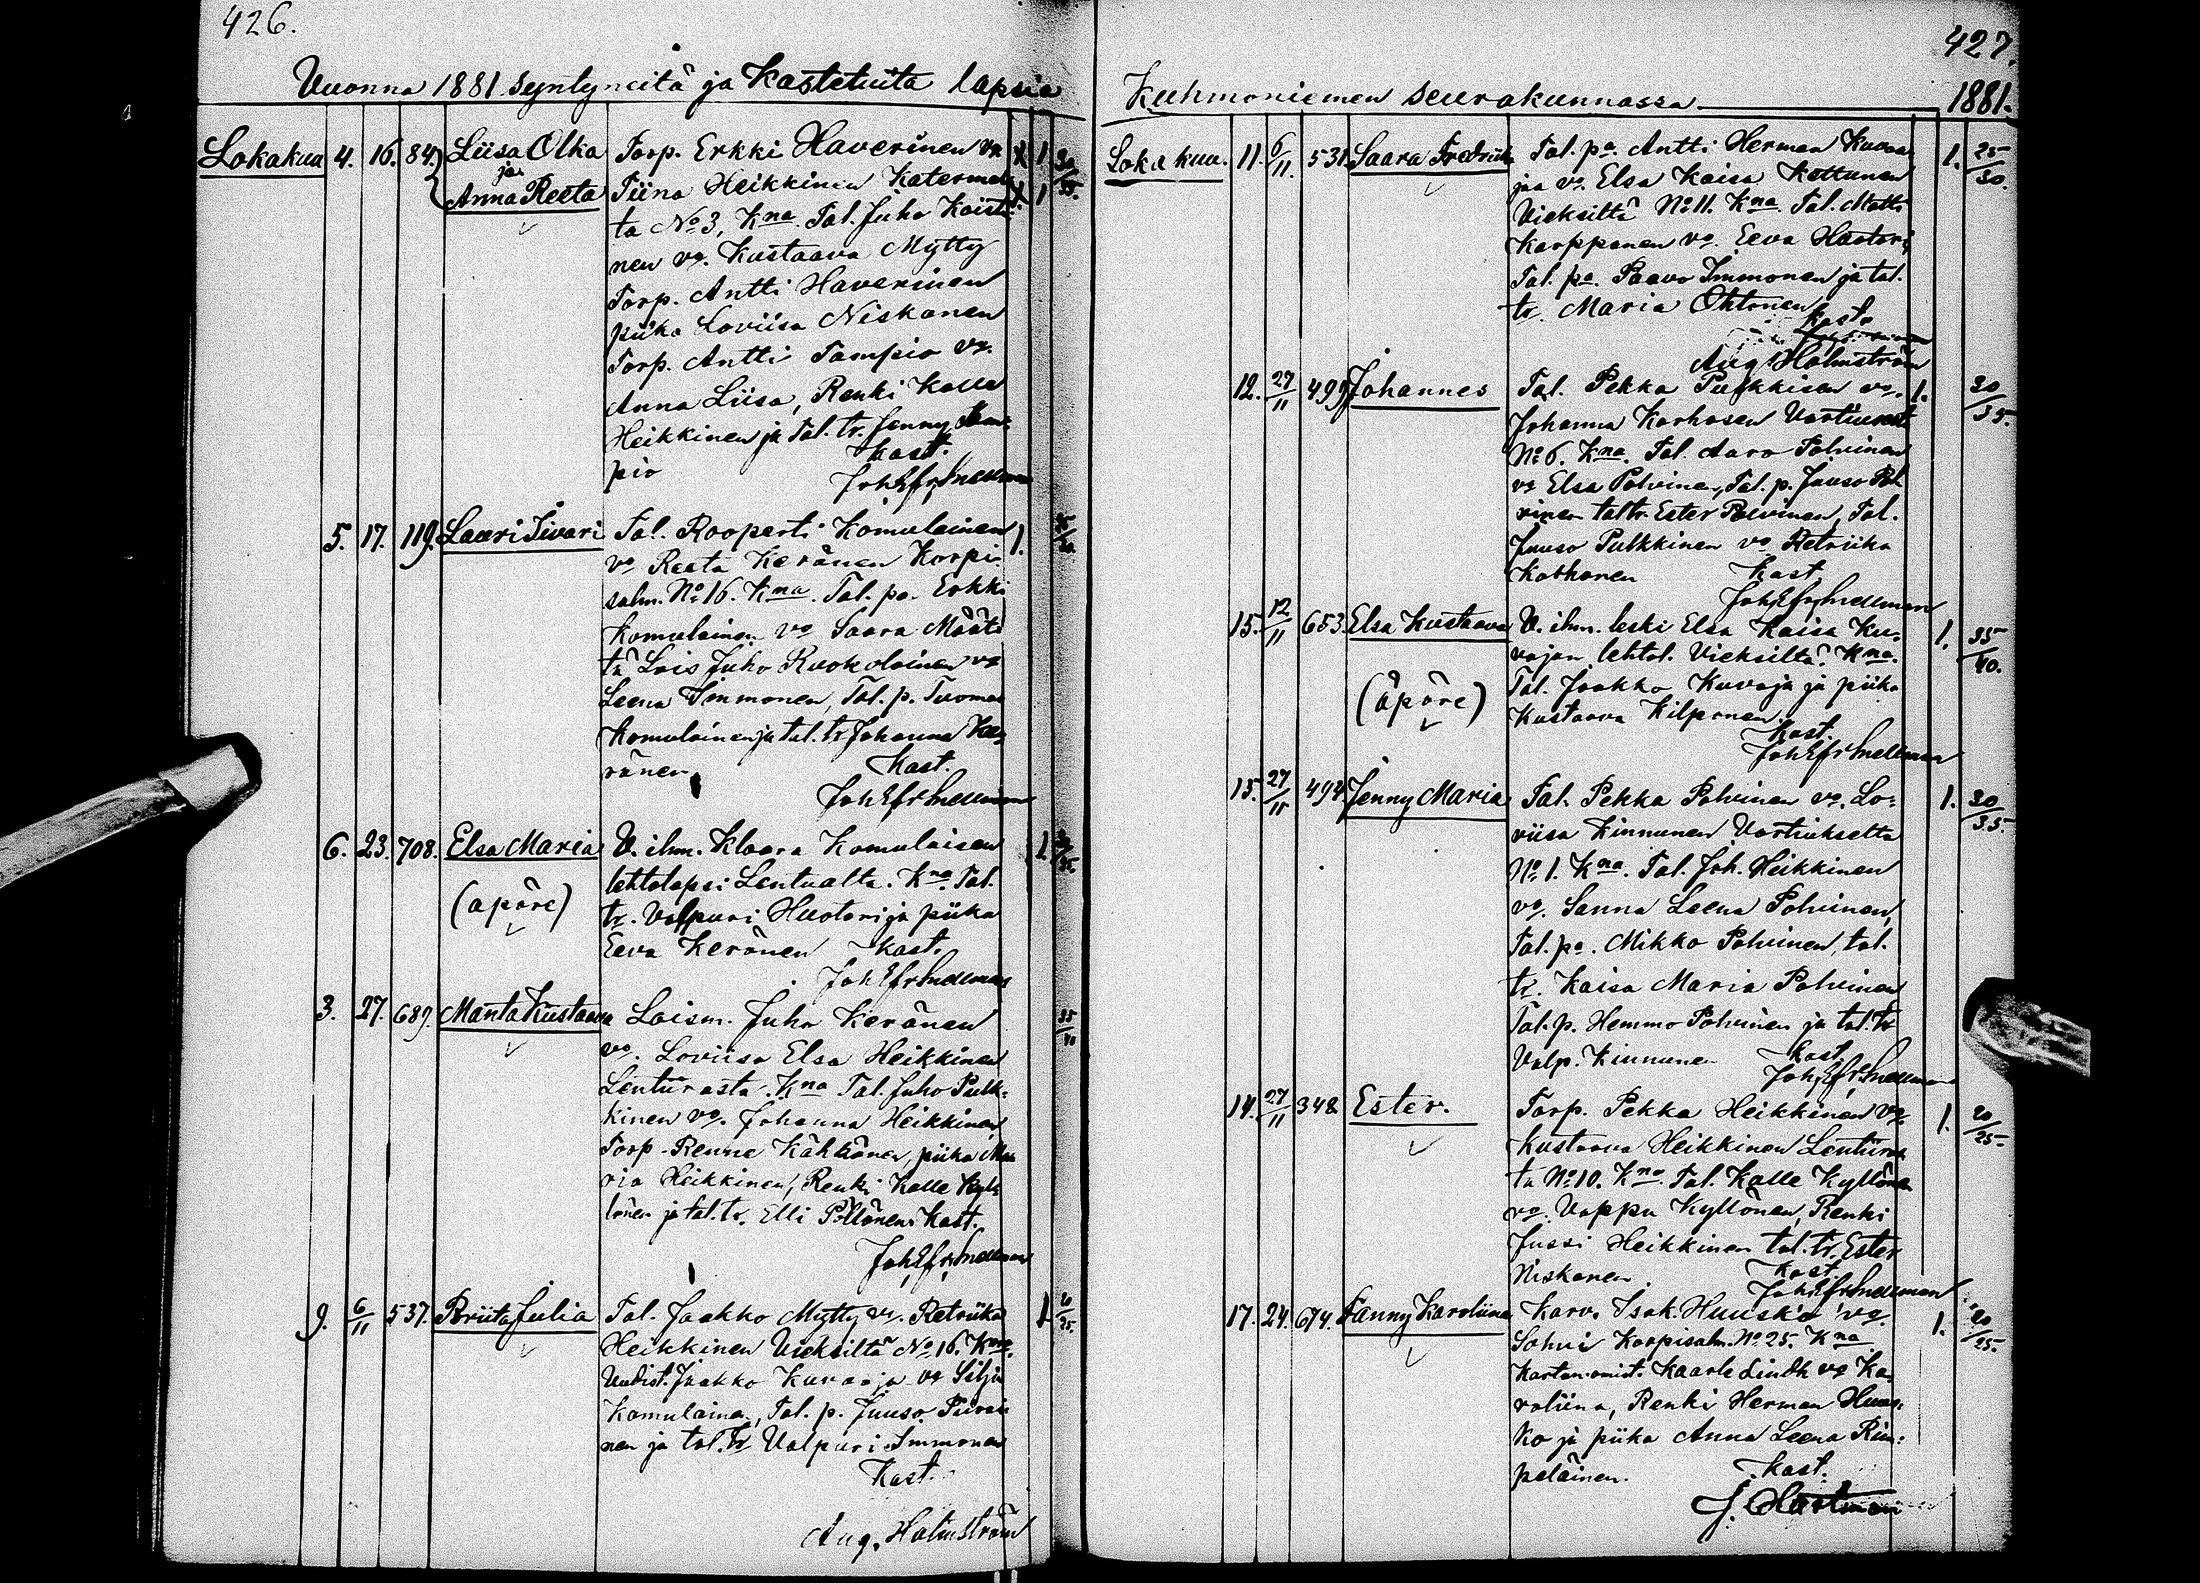 426.
Vuonna 1881 syntyneitä ja Kastetuita lapsia
Lokakuu 4. 16. 84. Liisa Olka
ja
Anna Reeta
Torp. Erkki Haverinen vo
Tiina Heikkinen Katermal
ta No 3, Kna Tal. Juho Koisti
nen vo. Kustaava Mytty
Torp. Antti Haverinen
piika Loviisa Niskanen
Torp. Antti Tampio vo.
Anna Liisa, Renki Kalle
Heikkinen ja Tal. tr. Jenny Tam-
pio
Kast.
Joh Efr Snellman
1. 1 30/35.
1. 1
5. 17. 119. Lauri Iivari
Tal. Rooperti Komulainen
vo Reeta Keränen Korpi-
salm. No 16. Kna. Tal. po. Erkki
Komulainen vo Saara Määt-
tä Lois Juho Ruokolainen vo
Leena Immonen, Tal. p. Tuomas
Komulainen ja tal. tr Johanna Ke-
ränen
Kast.
Joh Efr Snellman
1.
6. 23. 708. Elsa Maria
(äpäre)
V. ihm. Klaara Komulaisen
lehtolapsi Lentualta. Kna. Tal.
tr. Valpuri Huotari ja piika
Eeva Keränen Kast.
Joh Efr Snellman
1.
3. 27. 689. Manta Kustaava
Loism. Juho Keränen
vo. Loviisa Elsa Heikkinen
Lentürasta. Kna Tal. Juho Pulk-
kinen vo. Johanna Heikkinen
Torp. Renne Kähkönen, piika Ma
ria Heikkinen, Renki Kalle Kyl-
lönen ja tal. tr. Elli Pöllänen Kast.
Joh Efr Snellman
35/40
9. 6/11 537. Briita Julia
Tal. Jaakko Mytty vo. Retriika
Heikkinen Vieksiltä No 16. Kna.
Uudist. Jaakko Kuvaaja vo Silja
Komulainen, Tal. p. Juuso Piirai-
nen ja tal. tr Valpuri Immonen
Kast.
Aug. Holmström
1.
427.
Kuhmoniemen seurakunnassa 1881.
Lokakuu. 11. 6/11. 531. Saara Fredriika
Tal. po. Antti Herman Kuvaa-
jaa vo. Elsa Kaisa Kettunen
Vieksiltä No 11. Kna. Tal. Matti
Karppanen vo. Eeva Huotari,
Tal. po. Paavo Immonen ja tal.
tr. Maria Ohtonen
Kast.
Aug Holmström
1. 25/30.
12. 27/11 499. Johannes
Tal. Pekka Pulkkisen vo.
Johanna Karhosen Vartiuselt
No 6. Kna. Tal. Aaro Polvinen
vo Elsa Polvinen, Tal. p. Juuso Pol
vinen tal tr. Ester Polvinen, Tal.
Juuso Pulkkinen vo Hetriika
Karhonen Kast
Joh Efr Snellman
1. 30/35.
15. 12/11 653. Elsa Kustaava
(äpäre)
V. ihm. leski Elsa Kaisa Ku-
vajan lehtol. Vieksiltä. Kna.
Tal. Jaakko Kuvaja ja piika
Kustaava Kilponen.
Kast.
Joh Efr Snellman
1. 35/40.
15. 27/11 494. Jenny Maria
Tal. Pekka Polvinen vo. Lo-
viisa Kinnunen Vartiukselta
No 1. Kna. Tal. Joh. Heikkinen
vo. Sanna Leena Polvinen,
Tal. po. Mikko Polvinen, tal.
tr. Kaisa Maria Polvinen
Tal. p. Hemmo Polvinen ja tal. tr
Valp. Kinnunen Kast
Joh Efr Snellman
1. 30/35.
14. 27/11 348. Ester.
Torp. Pekka Heikkinen vo.
Kustaava Heikkinen Lentüras
ta No 10. Kna. Tal. Kalle Kyllöne
vo. Vappu Kyllönen, Renki
Jussi Heikkinen tal. tr. Ester
Niskanen. Kast
Joh Efr Snellman
1. 20/25
17. 24. 674. Fanny Karoliina
Karv. Isak. Huusko vo.
Sohvi Korpisalm. No 25. Kna
Kartan. omist. Kaarle Lindh vo Ka-
roliina, Renki Herman Huus-
ko ja piika Anna Leena Rim-
peläinen. Kast.
J. Hartman
1. 20/25.